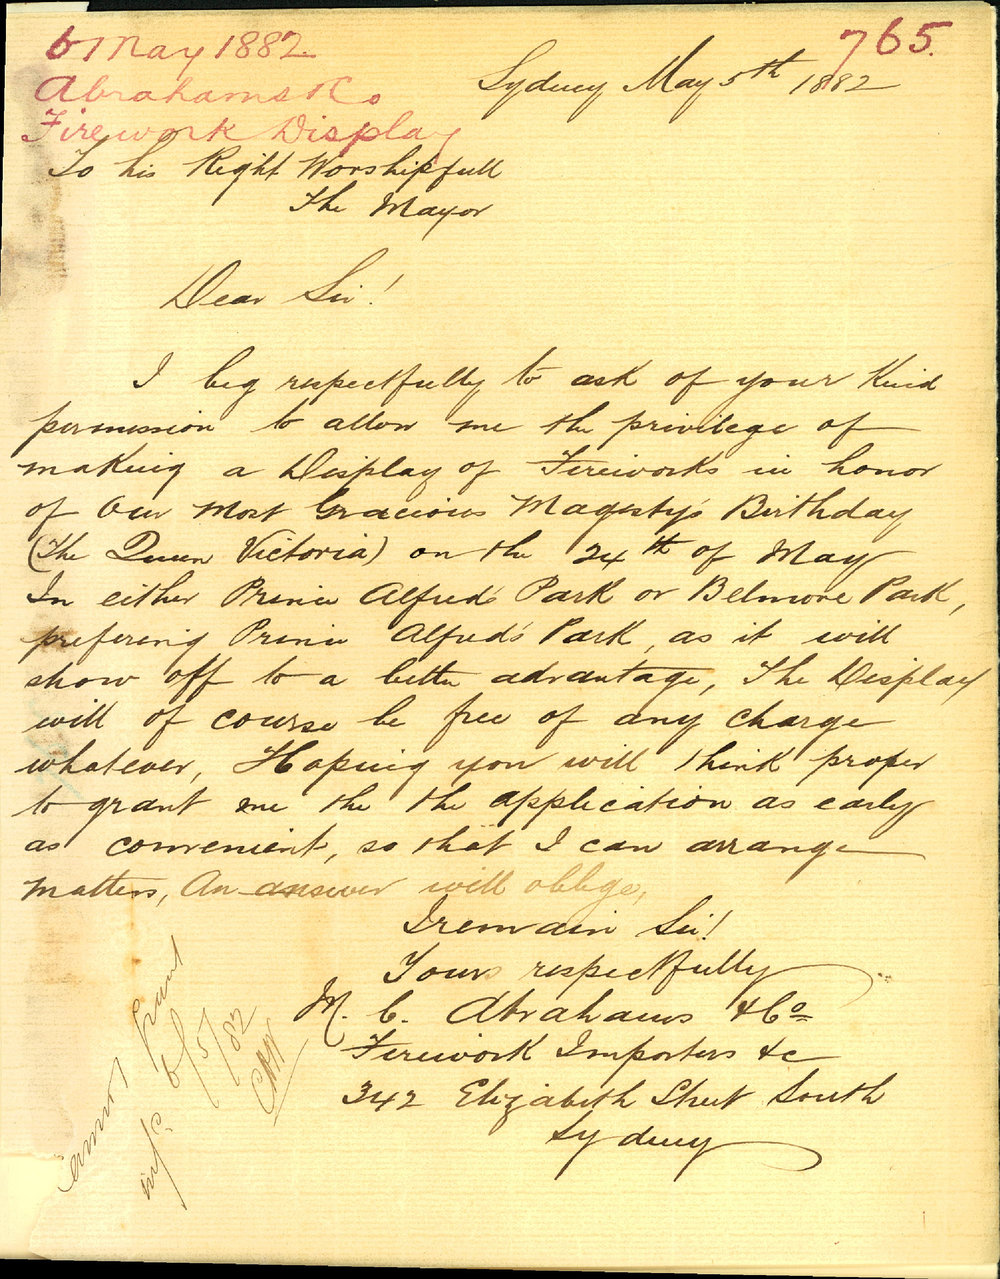 6 May 1882
765.
Abrahams & Co
Firework Display
Sydney May 5th 1882
To his Right Worshipfull
The Mayor
Dear Sir!
I beg respectfully to ask of your Kind
permission to allow me the privilege of
making a Display of Fireworks in honor
of Our Most Gracious Magesty's Birthday
(The Queen Victoria) on the 24th of May
In either Prince Alfred's Park or Belmore Park,
prefering Prince Alfred's Park, as it will
show off to a better advantage, The Display
will of course be free of any charge
whatever, Hoping you will think proper
to grant me the the application as early
as convenient, so that I can arrange
matters, An answer will oblige,
I remain Sir!
Yours respectfully
M. C. Abrahams & Co
Firework Importers &c
342 Elizabeth Street South
Sydney
Cannot grant
6/5/82